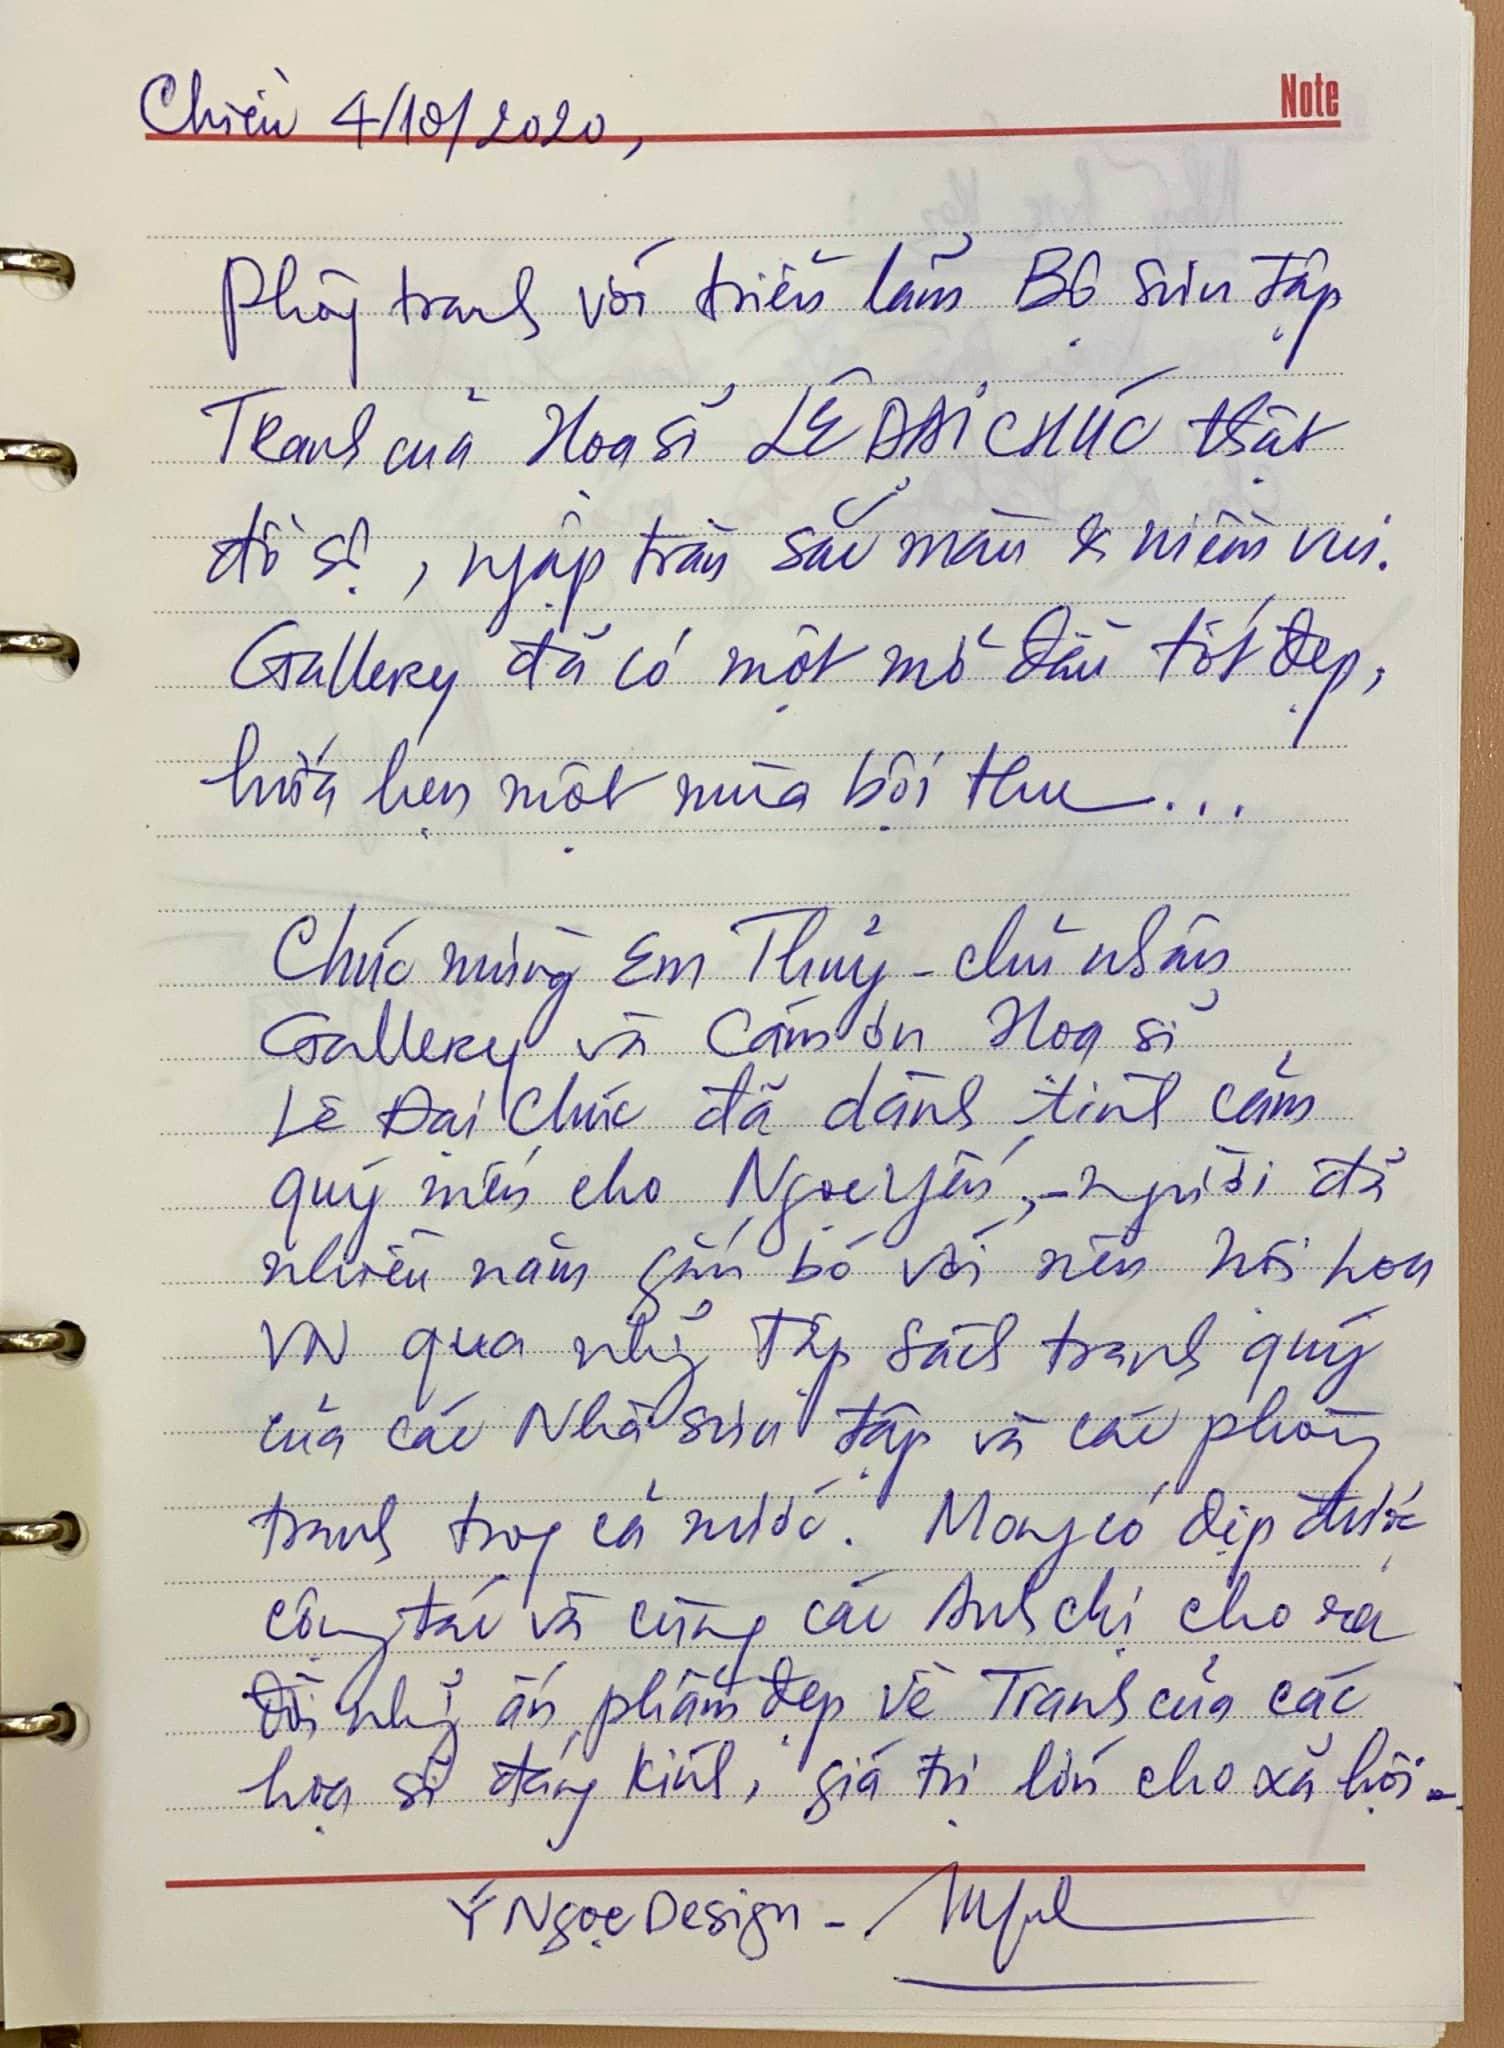 Note
Chiều 4/10/2020,
Phòng tranh với triển lãm Bộ sưu tập
Tranh của Hoạ sĩ LÊ ĐẠI CHÚC thật
đồ sộ, ngập tràn sắc màu & niềm vui.
Gallery đã có một mở đầu tốt đẹp,
hứa hẹn một mùa bội thu...
Chúc mừng Em Thủy - chủ nhân
Gallery và Cám ơn Hoạ sĩ
Lê Đại Chúc đã dành tình cảm
quý mến cho Ngọc Yến, - người đã
nhiều năm gắn bó với nền hội hoạ
VN qua những tập sách tranh quý
của các Nhà sưu tập và các phòng
tranh trong cả nước. Mong có dịp được
cộng tác và cùng các Anh chị cho ra
đời những ấn phẩm đẹp về Tranh của các
hoạ sĩ đáng kính, giá trị lớn cho xã hội -
Ý Ngọc Design -